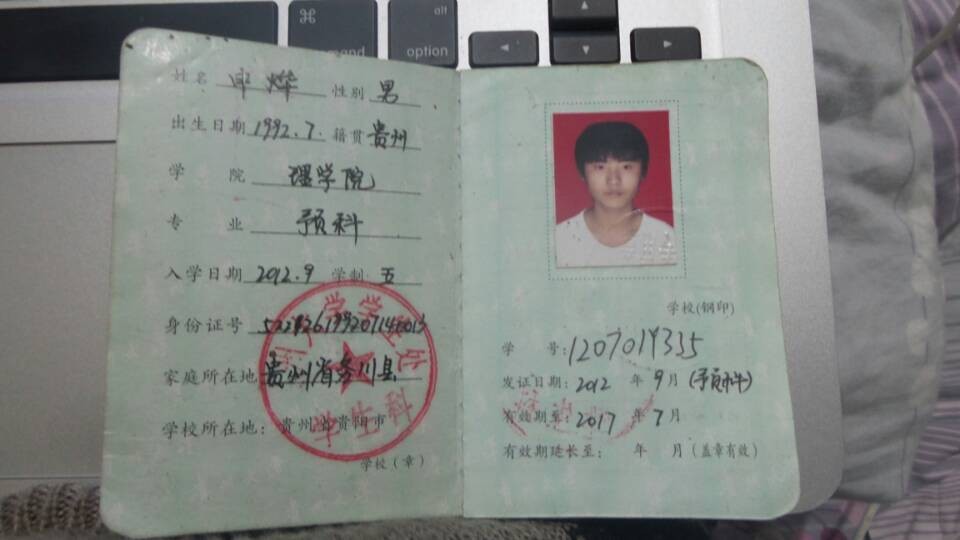 ⌘
alt
option
姓名 申烨 性别 男
出生日期 1992.7. 籍贯 贵州
学 院 理学院
专 业 预科
入学日期 2012.9 学制 五
身份证号
家庭所在地 贵州省务川县
学校所在地：贵州省贵阳市
学校（章）
学生科
学校(钢印)
学 号：1207019335
发证日期：2012 年 9 月 (预科)
有效期至：2017 年 7 月
有效期延长至： 年 月（盖章有效）